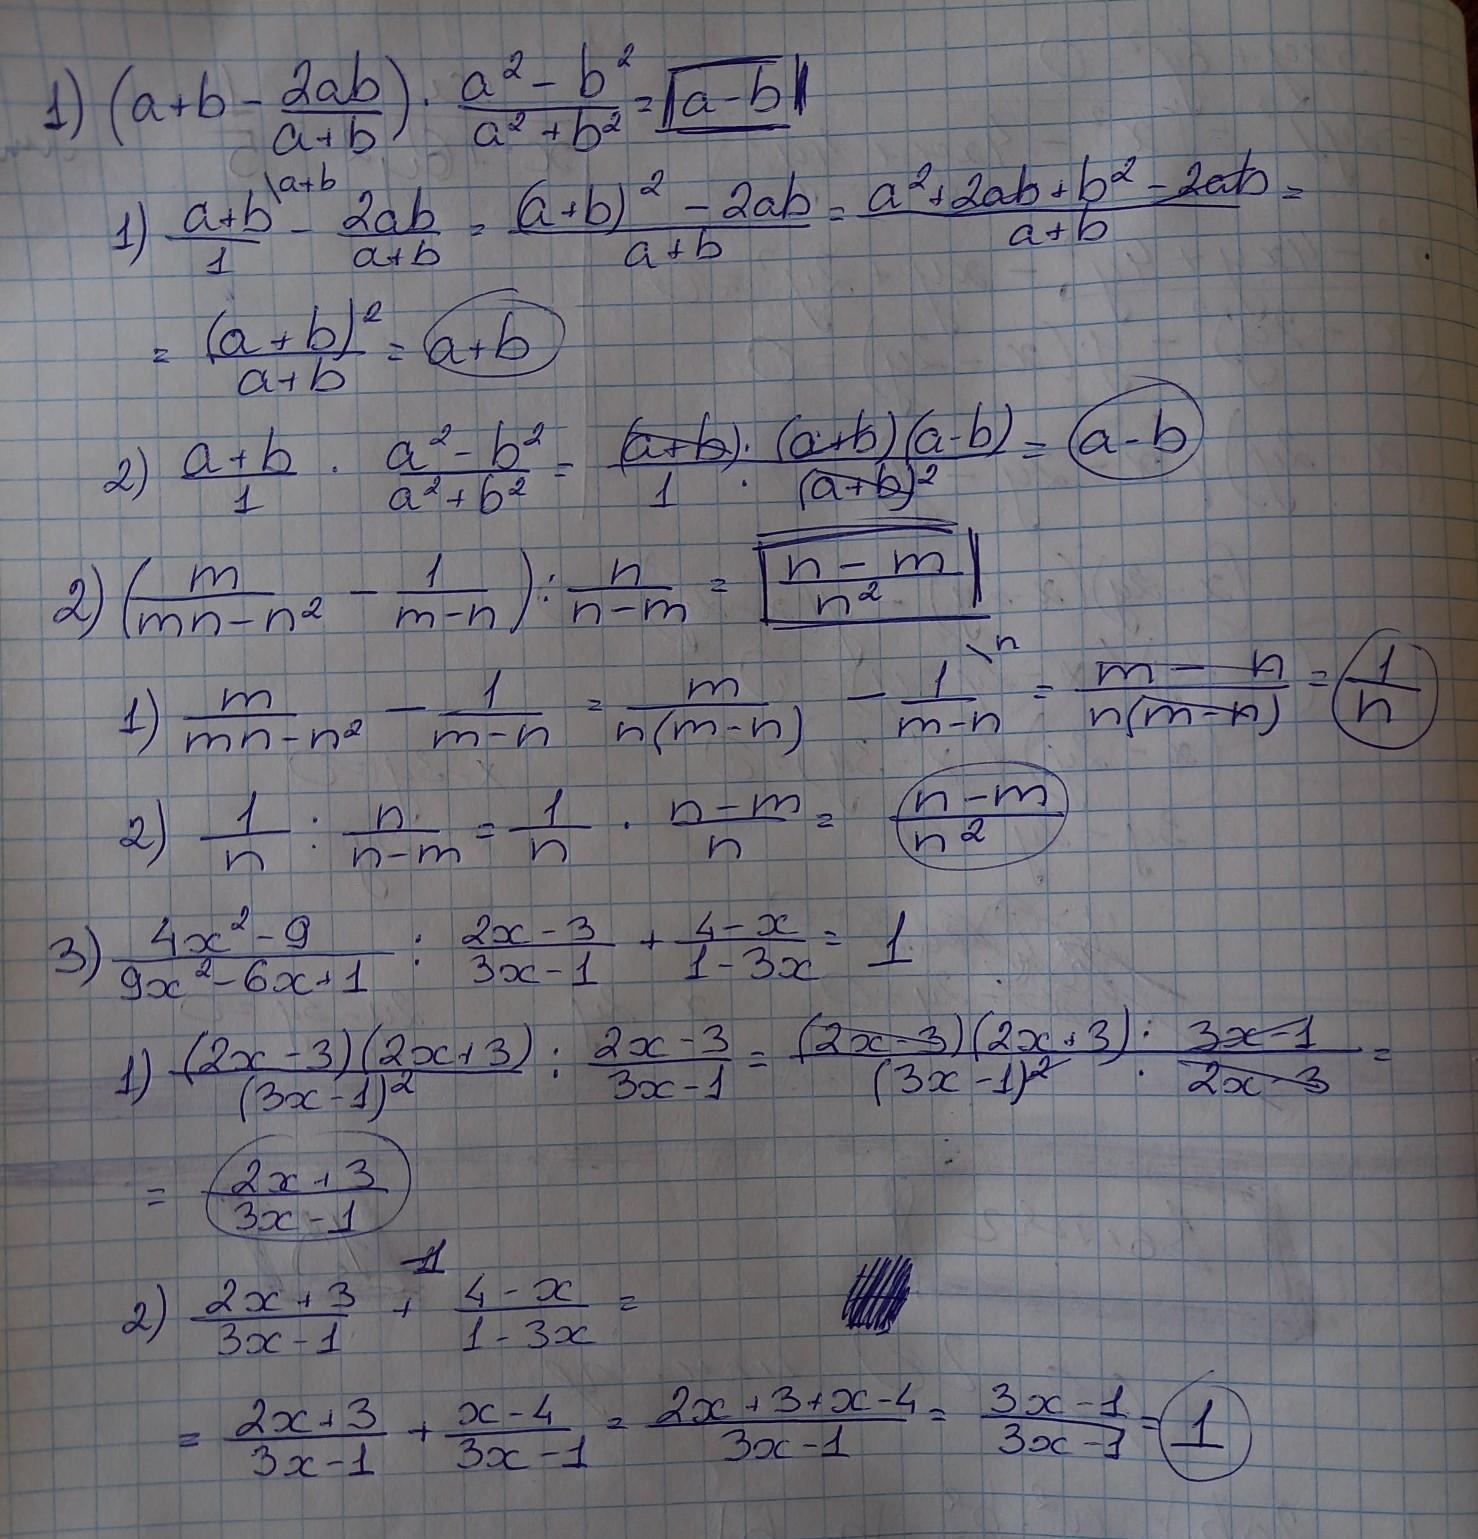 1) (a+b - 2ab/(a+b)) · (a² - b²)/(a² + b²) = a-b
1) (a+b)/1 \a+b - 2ab/(a+b) = ((a+b)² - 2ab)/(a+b) = (a²+2ab+b² - 2ab)/(a+b) =
= (a+b)²/(a+b) = a+b
2) (a+b)/1 · (a² - b²)/(a² + b²) = ((a+b) · (a+b)(a-b))/(1 · (a+b)²) = a-b
2) (m/(mn-n²) - 1/(m-n)) : n/(n-m) = (n-m)/n²
1) m/(mn-n²) - 1/(m-n) = m/(n(m-n)) - 1/(m-n) \n = (m-n)/(n(m-n)) = 1/n
2) 1/n : n/(n-m) = 1/n · (n-m)/n = (n-m)/n²
3) (4x²-9)/(9x²-6x+1) : (2x-3)/(3x-1) + (4-x)/(1-3x) = 1
1) ((2x-3)(2x+3))/(3x-1)² : (2x-3)/(3x-1) = ((2x-3)(2x+3))/(3x-1)² : (3x-1)/(2x-3) =
= (2x+3)/(3x-1)
2) (2x+3)/(3x-1) + -1 (4-x)/(1-3x) =
= (2x+3)/(3x-1) + (x-4)/(3x-1) = (2x+3+x-4)/(3x-1) = (3x-1)/(3x-1) = 1